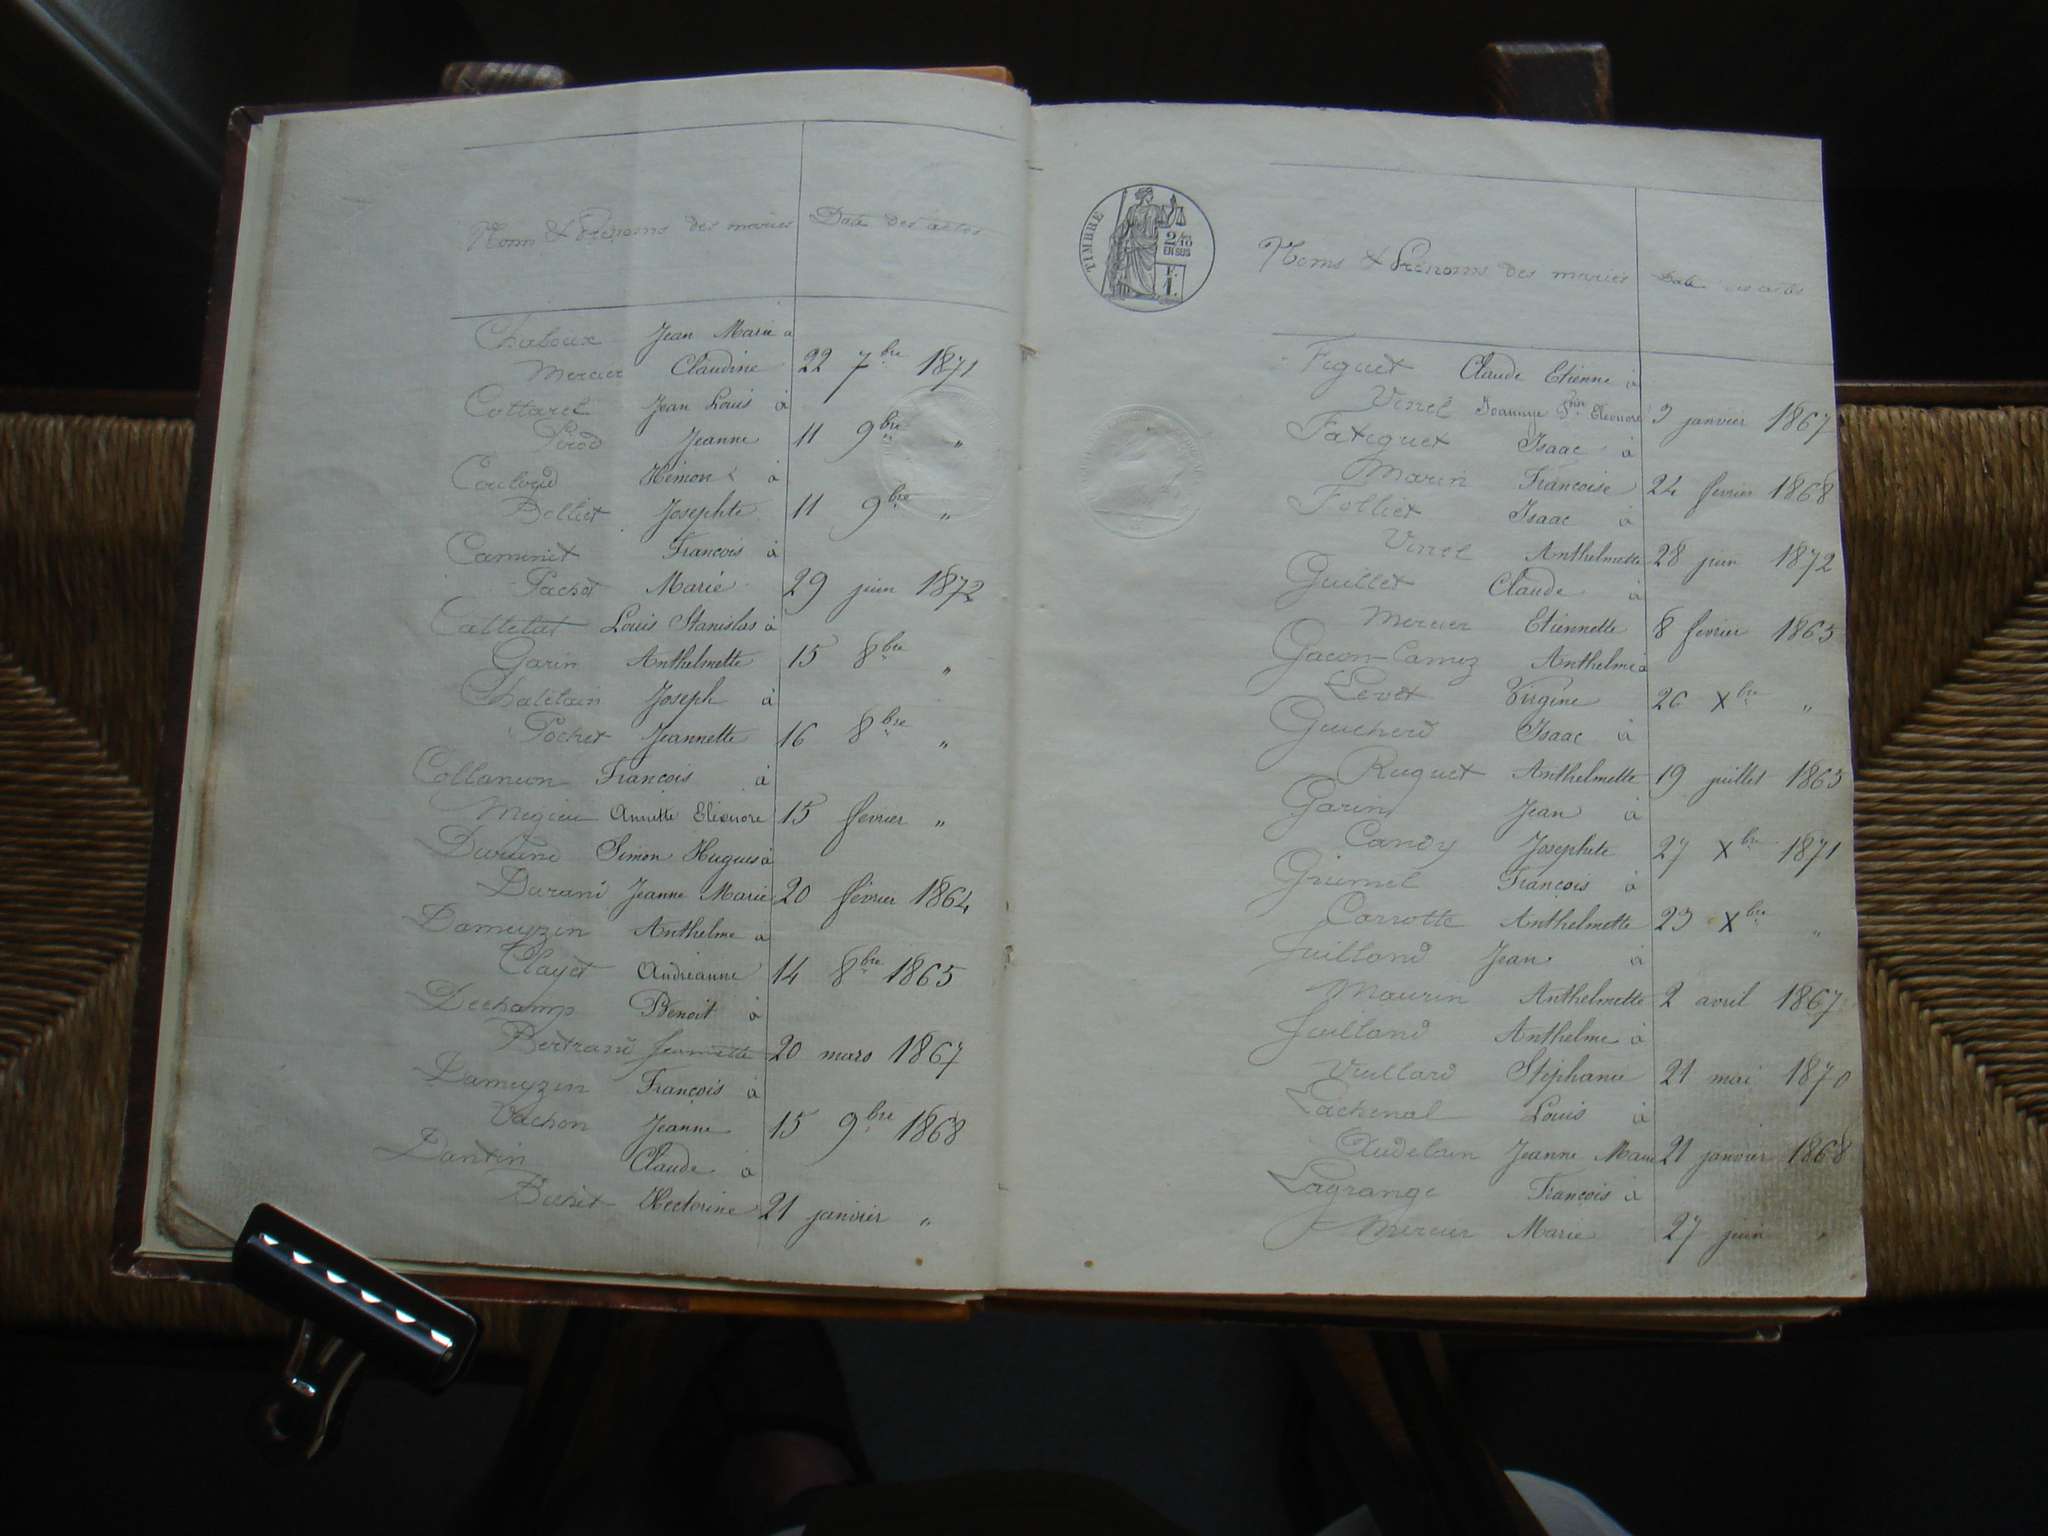 Noms & Prénoms des mariés Date des actes
Chaboux Jean Marie à
Mercier Claudine 22 7bre 1871
Cottarel Jean Louis à
Jeanne 11 9bre "
Couloud Hémon à
Bolliet Josephte 11 9bre "
Caminet François à
Pachot Marie 29 juin 1872
Louis Stanislas à
Garin Anthelmette 15 8bre "
Chatelain Joseph à
Pochet Jeannette 16 8bre "
François à
Annette Eléonore 15 fevrier "
Durand Simon Hugues à
Durand Jeanne Marie 20 février 1864
Dameyzin Anthelme à
Clayet Andréanne 14 8bre 1865
Dechamp Benoit à
Bertrand Jeannette 20 mars 1867
Dameyzin François à
Vachon Jeanne 15 9bre 1868
Dantin Claude à
Hectorine 21 janvier "
TIMBRE
2/10
EN SUS
F.
1.
Noms & Prénoms des mariés Date des actes
Feguet Claude Etienne à
Vinel Eléonore 3 janvier 1867
Fateguet Isaac à
Marin Françoise 24 fevrier 1868
Folliet Isaac à
Vinel Anthelmette 28 juin 1872
Guillet Claude à
Mercier Etiennette 8 fevrier 1865
Gacon-Camoz Anthelme à
Levet Virgine 26 Xbre "
Guicherd Isaac à
Ruguet Anthelmette 19 juillet 1865
Garin Jean à
Candy Josephte 27 Xbre 1871
Grimel François à
Carrotte Anthelmette 23 Xbre "
Juilland Jean à
Maurin Anthelmette 2 avril 1867
Juilland Anthelme à
Vuillard Stéphanie 21 mai 1870
Lachenal Louis à
Audelain Jeanne Marie 21 janvier 1868
Lagrange François à
Mercier Marie 27 juin "